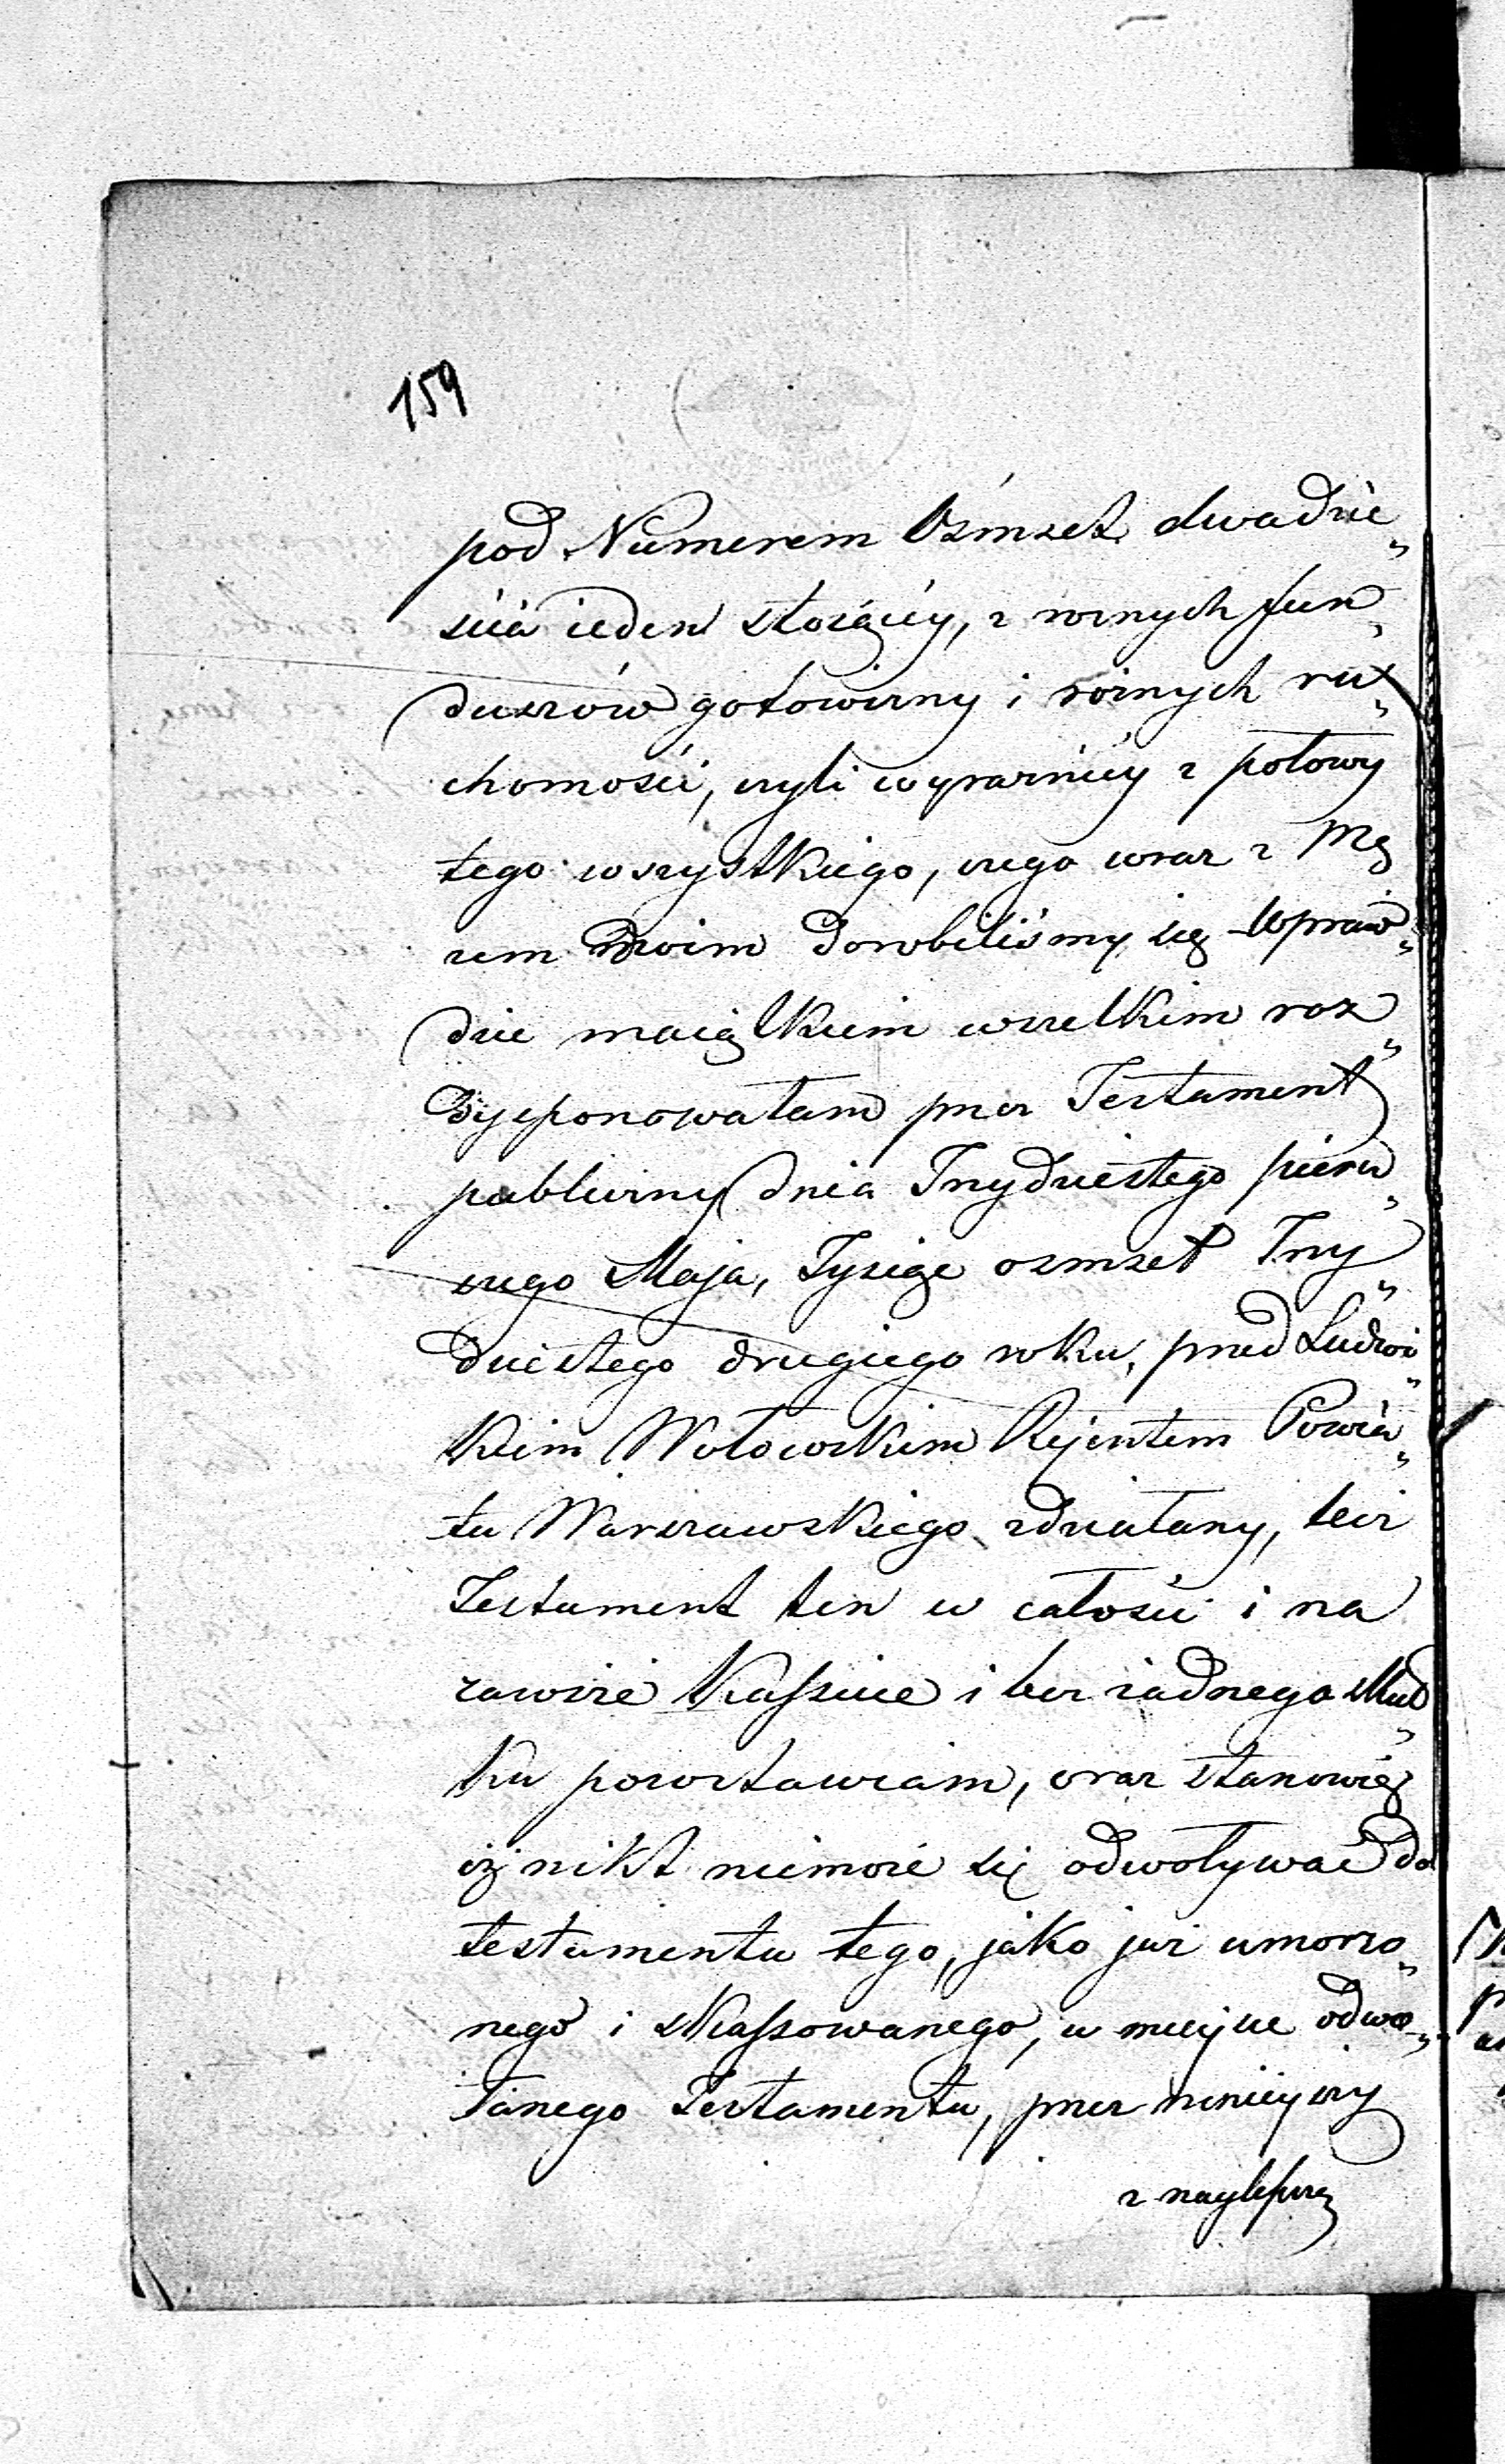 159
pod Numerem Ósmset dwadzie„
ścia ieden stoiący, z roznych fun„
duszów gotowizny i roźnych ru„
chomości, czyli wyrazniéy z połowy
tego wszystkiego, czego wraz z Mę
zem moim dorobiliśmy się Wpraw„
dzie maiątkiem wszelkim roz„
dysponowałam przez Testament
publiczny dnia Trzydziestego pierw„
szego Maja, Tysiąc osmset Trzy„
dziestego drugiego roku, przed Ludwi„
kiem Wołowskim Rejentem Powia„
tu Warszawskiego zdziałany, lecz
Testament ten w całości i na
zawsze kassuie i bez żadnego skut„
ku pozostawiam, oraz stanowię
iż nikt niemoże się odwoływać do
testamentu tego, jako już umorzo„
nego i skassowanego, w mieysce odwo„
łanego Testamentu, przez ninieyszy
z naylepszą